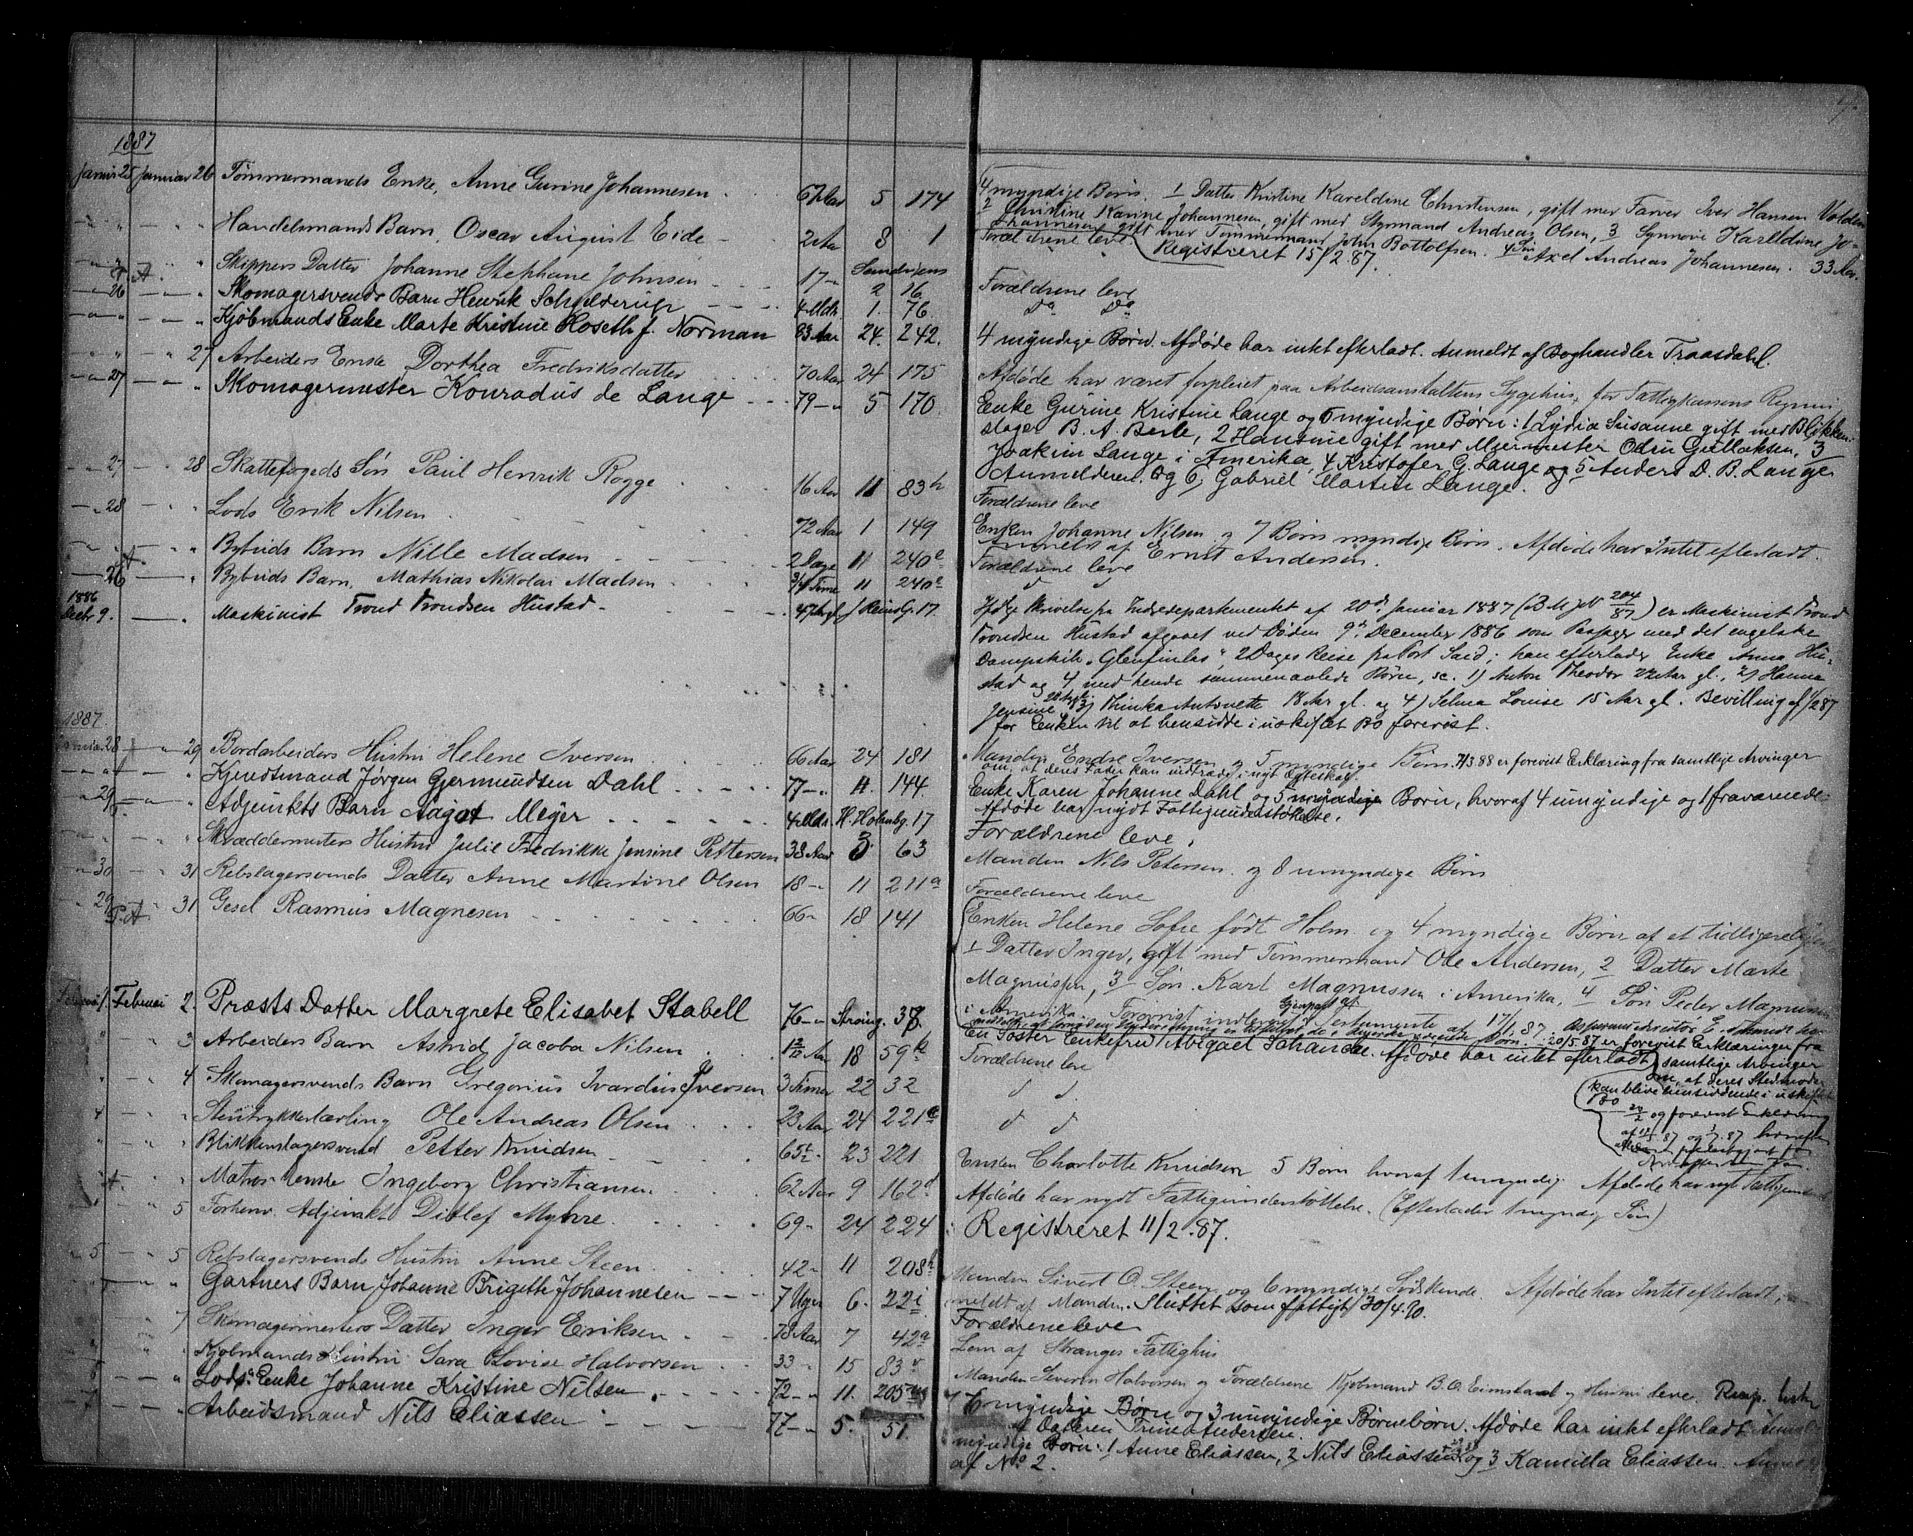 1887
Januar 25 Januar 26 Tømmermands Enke, Anne Gurine Johannesen 67 Aar 5 174
Handelsmands Barn, Oscar August Eide 2 Aar 8 1
Skippers Datter Johanne Stephane Johnsen 17 Sandvigens 2 16
26 Skomagersvends Barn Henrik Schjelderup 4 Mdr. 1. 76
Kjøbmands Enke Marte Kristine Roseth f. Norman 83 Aar 24. 242.
27 Arbeiders Enke Dorthea Fredriksdatter 70 Aar 24 175
27 Skomagermester Konradus de Lange 79 5 170
27 28 Skattefogeds Søn Paul Henrik Rogge 16 Aar 11 83 b
28 Lods Erik Nilsen 72 Aar 1 149
Bybuds Barn Nille Madsen 2 Dage 11 240 e
26 Bybuds Barn, Mathias Nikolai Madsen 3/4 Time 11 240 e
1886
Decbr 9. Maskinist Trond Trondsen Hustad 47 17
1887
Januar 28 29 Bordarbeiders Hustru Helene Iversen 66 Aar 24 181
Kjendtmand Jørgen Gjermundsen Dahl 77 11. 144
29 Adjunkts Barn Aagot Meyer 4 Mdr. H. Holmbg. 17
Skræddermesters Hustru Julie Fredrikke Jensine Pettersen 38 Aar 3 63
30 31 Rebslagersvends Datter Anne Martine Olsen 18 11 211 a
29 31 Gesel Rasmus Magnesen 66 18 141
Februar 1. Februar 2. Præsts Datter Margrete Elisabet Stabell 76 Strangg. 37
3 Arbeiders Barn Astrid Jacoba Nilsen Aar 18 59 b
4 Skomagersvends Barn Gregorius Ivardius Iversen 3 Timer 22 32
4 Stentrykkerlærling Ole Andreas Olsen 23 Aar 24 221 a
Blikkenslagersvend Petter Knudsen 65 23 221
Matros Enke Ingeborg Christiansen 62 Aar 9 162 d
5 Forhenv. Adjunkt Ditlef Myhre 69 24 224
5 5 Rebslagersvends Hustru Anne Steen 42 11 208 b
Gartners Barn Johanne Brigithe Johannesen 7 Uger 6. 22 i
7 Skomagermesters Datter Inger Eriksen 78 Aar 7 42 a
Kjøbmands Hustru Sara Lovise Halvorsen 33 15 83
8 Lods Enke Johanne Kristine Nilsen 72 11. 205
Arbeidsmand Nils Eliassen 77 5. 51
4 myndige Børn. 1 Datter Kristine Kareldine Christensen, gift med Farver Iver Hansen Volden
2 Christine Karine Johannesen, gift med Styrmand Andreas Olsen, 3 Synnøve Karldine Jo-
hannesen gift med Tømmermand John Bottolfsen. 4 Søn Axel Andreas Johannesen. 33 Aar.
Forældrene leve Registreret 15/2.87.
Forældrene leve
Do Do
4 myndige Børn. Afdøde har intet efterladt. Anmeldt af Boghandler Traasdahl.
Afdøde har været forpleiet paa Arbeidsanstaltens Sygehus, for Fattigkassens Regning
Enke Gurine Kristine Lange og 6 myndige Børn: 1 Lydia Susanne gift med Blikken-
slager B. A. Berle, 2 Hansine gift med Murmester Odin Gullaksen, 3
Joakim Lange i Amerika, 4 Kristofer G. Lange og 5 Anders D. B. Lange
Anmelderen. og 6, Gabriel Martin Lange.
Forældrene leve
Enken Johanne Nilsen og 7 Børn myndige Børn. Afdøde har Intet efterladt.
Anmeldt af Ernst Andersen.
Forældrene leve
d d
Ifølge Skrivelse fra Indredepartementet af 20d. Januar 1887 (B M J No 204/87) er Maskinist Trond
Trondsen Hustad afgaaet ved Døden 9de December 1886 som Passager med det engelske
Dampskib "Glenfinlas", 2 Dages Reise fra Port Said; han efterlader Enke Anna Hu-
stad og 4 med hende sammenavlede Børn, sc. 1) Anton Theodor 22 Aar gl., 2) Hanna
Jensine 20 Aar, 3) Thinka Antonette 18 Aar gl. og 4) Selma Louise 15 Aar gl. Bevilling af 1/2 87
for Enken til at hensidde i uskiftet Bo forevist.
Manden Endre Iversen og 5 myndige Børn. 7/3 88 er forevist Erklæring fra samtlige Arvinger
om, at deres Fader kan indtræde i nyt Ægteskab.
Enke Karen Johanne Dahl og 5 myndige Børn, hvoraf 4 umyndige og 1 fraværende.
Afdøde har nydt Fattigunderstøttelse.
Forældrene leve.
Manden Nils Petersen og 8 umyndige Børn
Forældrene leve
Enken Helene Sofie født Holm og 4 myndige Børn af et tidligere
1 Datter Inger, gift med Tømmermand Ole Andersen, 2 Datter Marte
Magnussen, 3 Søn Karl Magnussen i Amerika, 4 Søn Peder Magnussen
i Amerika. Forevist Gjenpart af Testamente af 17/1.87.
En Søster Enkefru Abigael Schancke. Afdøde har intet efterladt
20/5.87 er forevist Erklæringer fra
samtlige Arvinger
om, at deres Stedmoder
kan blive hensiddende i uskiftet
Bo
og forevist Erklæring
Forældrene leve
d d
d d
Enken Charlotte Knudsen 5 Børn hvoraf 1 umyndig. Afdøde har nydt Fattigunderst.
Afdøde har nydt Fattigunderstøttelse. (Efterlader 1 myndig Søn)
Registreret 11/2.87.
Manden Sivert O. Steen og 6 myndige Sødskende. Afdøde har Intet efterladt,
meldt af Manden. Sluttet som fattigt 30/4.90.
Forældrene leve
Lem af Stranges Fattighus
Manden Severin Halvorsen og Forældrene Kjøbmand B. O. Eimstad og Hustru leve.
6 myndige Børn og 3 umyndige Børnebørn. Afdøde har intet efterladt. Anmeldt
af Datteren Trine Andersen.
myndige Børn: 1 Anne Eliassen, 2 Nils Eliassen og 3 Kamilla Eliassen.
af No 2.